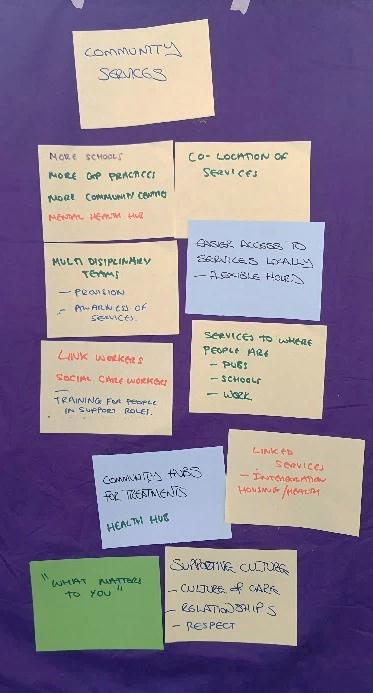 COMMUNITY
SERVICES
MORE SCHOOLS
MORE GP PRACTICES
MORE COMMUNITY CENTRES
MENTAL HEALTH HUB
CO-LOCATION OF
SERVICES
MULTI DISIPLINARY
TEAMS
- PROVISION
- AWARNESS OF
SERVICES.
EASIER ACCESS TO
SERVICES LOCALLY
- FLEXIBLE HOURS
LINK WORKERS
SOCIAL CARE WORKERS
TRAINING FOR PEOPLE
IN SUPPORT ROLES.
SERVICES TO WHERE
PEOPLE ARE
- PUBS
- SCHOOLS
- WORK
COMMUNITY HUBS
FOR TREATMENTS
HEALTH HUB
LINKED
SERVICES
- INTERGRATION
HOUSING/HEALTH
"WHAT MATTERS
TO YOU"
SUPPORTING CULTURE
- CULTURE OF CARE
- RELATIONSHIPS
- RESPECT